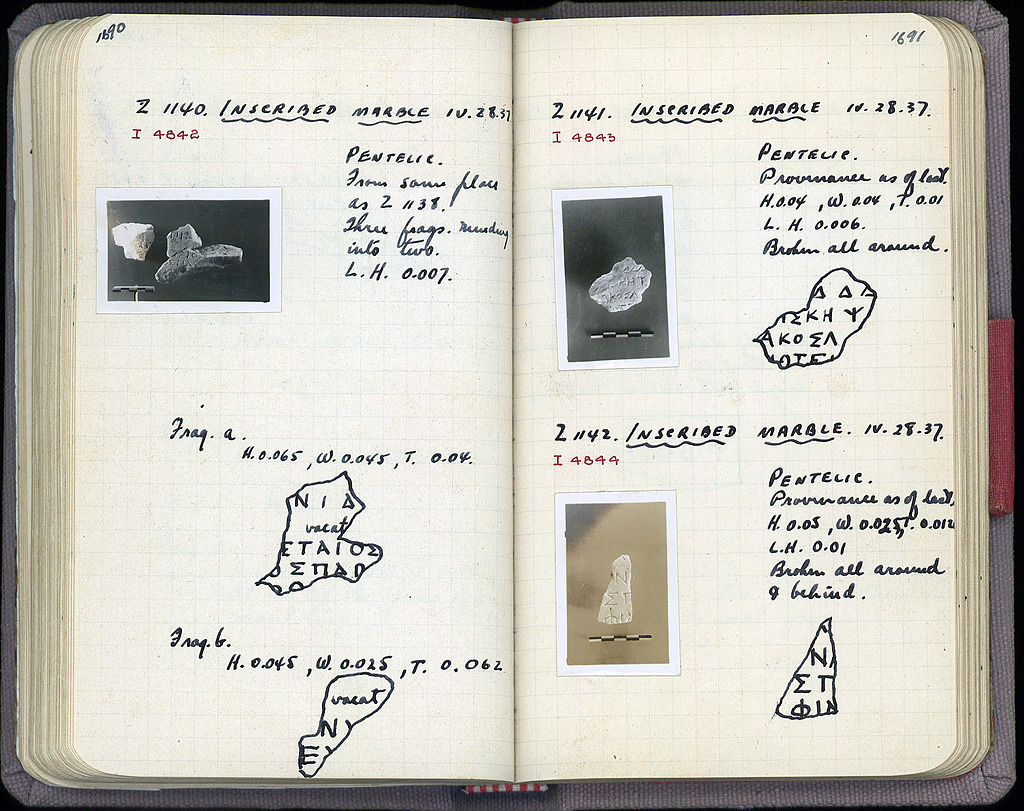 1690
Z 1140. INSCRIBED MARBLE IV.28.37
I 4842
PENTELIC.
From same place
as Z 1138.
Three frags. mending
into two.
L.H. 0.007.
Frag. a.
H. 0.065, W. 0.045, T. 0.04.
Ν Ι Δ
vacat
ΕΤΑΙΟΣ
ΟΣΠΑΡ
Frag. b.
H. 0.045, W. 0.025, T. 0.062
vacat
Ν
ΕΥ
1691
Z 1141. INSCRIBED MARBLE IV.28.37.
I 4843
PENTELIC.
Provenance as of last.
H. 0.04, W. 0.04, T. 0.01
L.H. 0.006.
Broken all around.
Δ Δ Λ
ΙΣΚΗ Ψ
ΑΚΟΣΛ
ΟΤΕ
Z 1142. INSCRIBED MARBLE. IV.28.37.
I 4844
PENTELIC.
Provenance as of last.
H. 0.05, W. 0.025, T. 0.012
L.H. 0.01
Broken all around
& behind.
Ν
ΣΤ
ΦΙΛ